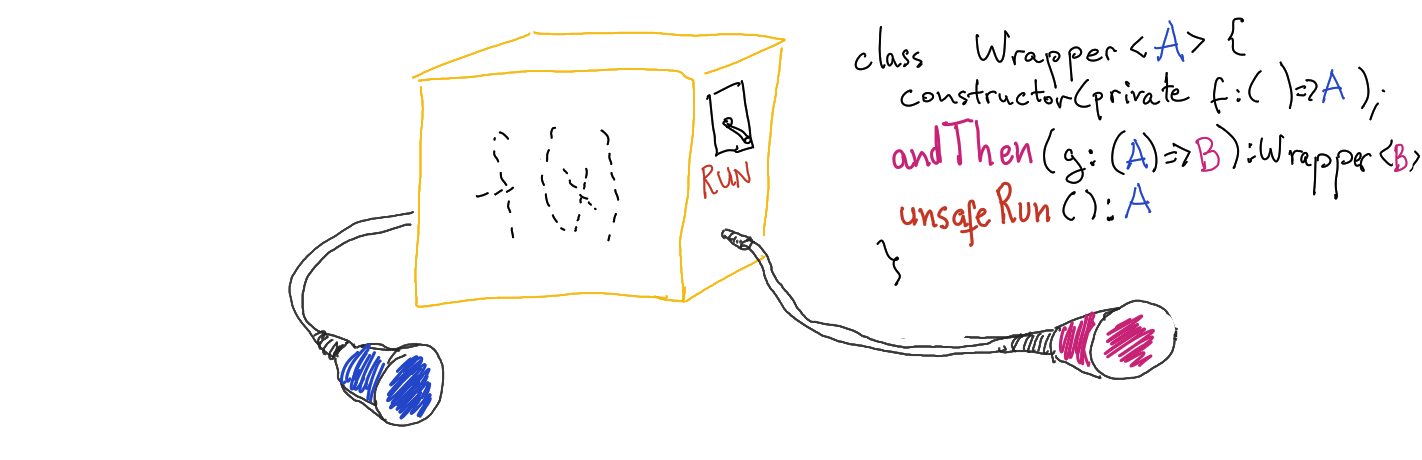 f(x)
RUN
class Wrapper <A> {
constructor(private f:( )=>A );
andThen(g: (A)=>B):Wrapper<B>
unsafeRun(): A
}